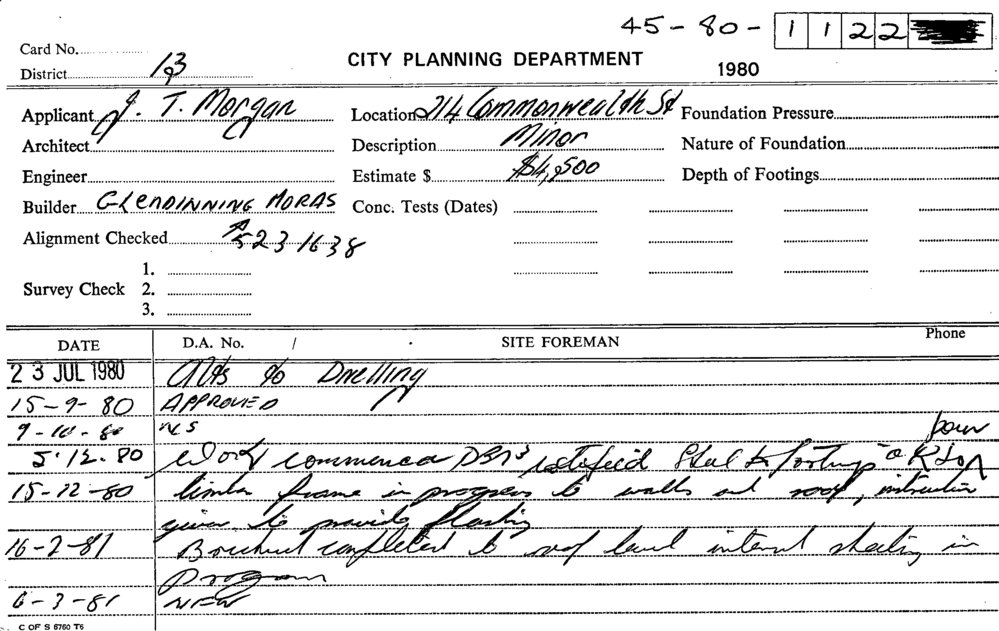 45-80-1122
Card No.
District 13
CITY PLANNING DEPARTMENT
1980
Applicant J. T. Morgan
Location 214 Commonwealth St
Foundation Pressure
Architect
Description Minor
Nature of Foundation
Engineer
Estimate $ $4,500
Depth of Footings
Builder GLENDINNING MORAS
Conc. Tests (Dates)
Alignment Checked 5231638
Survey Check
1.
2.
3.
DATE
D.A. No.
SITE FOREMAN
Phone
23 JUL 1980 Alts to Dwelling
15-9-80 APPROVED
9-10-80 WS
5.12.80 Work commenced Steel to footings O.K to pour
15-12-80 timber frame in progress to walls and roof, instruction
given to provide flashing
16-2-81 completed to roof level internal sheeting in
progress
6-3-81 NFW
C OF S 6760 T6